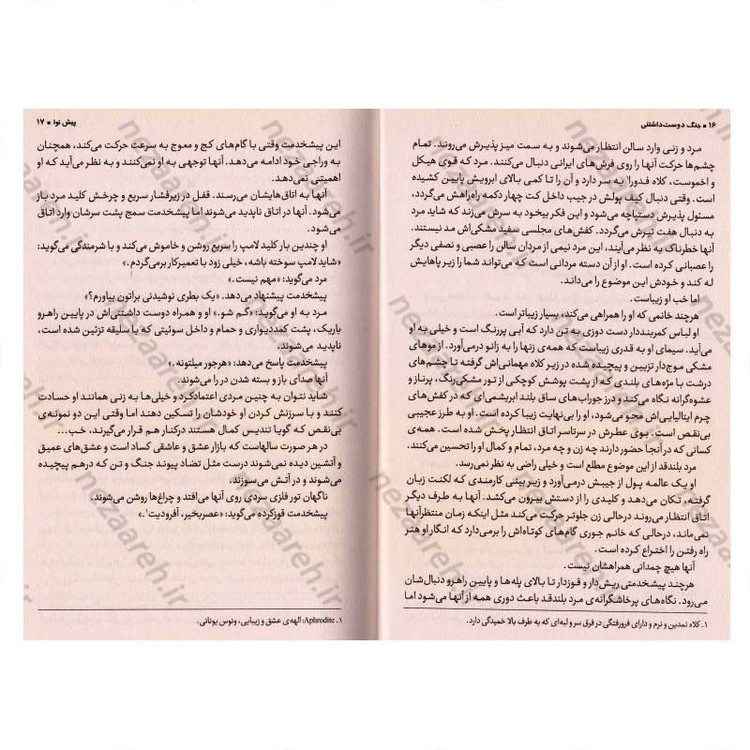 ۱۶ • جنگ دوست‌داشتنی
مرد و زنی وارد سالن انتظار می‌شوند و به سمت میز پذیرش می‌روند. تمام
چشم‌ها حرکت آنها را روی فرش‌های ایرانی دنبال می‌کنند. مرد که قوی هیکل
و اخموست، کلاه فدورا¹ به سر دارد و آن را تا کمی بالای ابرویش پایین کشیده
است. وقتی دنبال کیف پولش در جیب داخل کت چهار دکمه راه راهش می‌گردد،
مسئول پذیرش دستپاچه می‌شود و این فکر بیخود به سرش می‌زند که شاید مرد
به دنبال هفت تیرش می‌گردد. کفش‌های مجلسی سفید مشکی‌اش مد نیستند.
آنها خطرناک به نظر می‌آیند، این مرد نیمی از مردان سالن را عصبی و نصفی دیگر
را عصبانی کرده است. او از آن دسته مردانی است که می‌تواند شما را زیر پاهایش
له کند و خودش این موضوع را می‌داند.
اما خب او زیباست.
هرچند خانمی که او را همراهی می‌کند، بسیار زیباتر است.
او لباس کمربنددار دست دوزی به تن دارد که آبی پررنگ است و خیلی به او
می‌آید. سیمای او به قدری زیباست که همه‌ی زنها را به زانو درمی‌آورد. از موهای
مشکی موج‌دار تزیین و پیچیده شده در زیر کلاه مهمانی‌اش گرفته تا چشم‌های
درشت با مژه‌های بلندی که از پشت پوشش کوچکی از تور مشکی رنگ، پرناز و
عشوه‌گرانه نگاه می‌کند و درز جوراب‌های ساق بلند ابریشمی‌ای که در کفش‌های
چرم ایتالیایی‌اش محو می‌شود، او را بی‌نهایت زیبا کرده است. او به طرز عجیبی
بی‌نقص است. بوی عطرش در سرتاسر اتاق انتظار پخش شده است. همه‌ی
کسانی که در آنجا حضور دارند چه زن و چه مرد، تمام و کمال او را تحسین می‌کنند.
مرد بلندقد از این موضوع مطلع است و خیلی راضی به نظر نمی‌رسد.
او یک عالمه پول از جیبش درمی‌آورد و زیر بینی کارمندی که لکنت زبان
گرفته، تکان می‌دهد و کلیدی را از دستش بیرون می‌کشد. آنها به طرف دیگر
اتاق انتظار می‌روند درحالی زن جلوتر حرکت می‌کند مثل اینکه زمان منتظر آنها
نمی‌ماند، درحالی که خانم جوری گام‌های کوتاه‌اش را برمی‌دارد که انگار او هنر
راه رفتن را اختراع کرده است.
آنها هیچ چمدانی همراهشان نیست.
هرچند پیشخدمتی ریش‌دار و قوزدار تا بالای پله‌ها و پایین راهرو دنبال‌شان
می‌رود. نگاه‌های پرخاشگرانه‌ی مرد بلندقد باعث دوری همه از آنها می‌شود اما
۱. کلاه تمدین و نرم و دارای فرورفتگی در فرق سر و لبه‌ای که به طرف بالا خمیدگی دارد.
پیش نوا • ۱۷
این پیشخدمت وقتی با گام‌های کج و معوج به سرعت حرکت می‌کند، همچنان
به وراجی خود ادامه می‌دهد. آنها توجهی به او نمی‌کنند و به نظر می‌آید که او
اهمیتی نمی‌دهد.
آنها به اتاق‌هایشان می‌رسند. قفل در زیر فشار سریع و چرخش کلید مرد باز
می‌شود. آنها در اتاق ناپدید می‌شوند اما پیشخدمت سمج پشت سرشان وارد اتاق
می‌شود.
او چندین بار کلید لامپ را سریع روشن و خاموش می‌کند و با شرمندگی می‌گوید:
«شاید لامپ سوخته باشه، خیلی زود با تعمیرکار برمی‌گردم.»
مرد می‌گوید: «مهم نیست.»
پیشخدمت پیشنهاد می‌دهد. «یک بطری نوشیدنی براتون بیاورم؟»
مرد به او می‌گوید: «گم شو.» او و همراه دوست داشتنی‌اش در پایین راهرو
باریک، پشت کمددیواری و حمام و داخل سوئیتی که با سلیقه تزئین شده است،
ناپدید می‌شوند.
پیشخدمت پاسخ می‌دهد: «هرجور میلتونه.»
آنها صدای باز و بسته شدن در را می‌شوند.
شاید نتوان به چنین مردی اعتماد کرد و خیلی‌ها به زنی همانند او حسادت
کنند و با سرزنش کردن او خودشان را تسکین دهند اما وقتی این دو نمونه‌ی
بی‌نقص که گویا تندیس کمال هستند درکنار هم قرار می‌گیرند، خب...
در هر صورت سالهاست که بازار عشق و عاشقی کساد است و عشق‌های عمیق
و آتشین دیده نمی‌شوند درست مثل تضاد پیوند جنگ و تن که درهم پیچیده
می‌شوند و در آتش می‌سوزند.
ناگهان تور فلزی سردی روی آنها می‌افتد و چراغ‌ها روشن می‌شوند.
پیشخدمت قوزکرده می‌گوید: «عصربخیر، آفرودیت¹.»
۱. Aphrodite: الهه‌ی عشق و زیبایی، ونوس یونانی.
nezaareh.ir